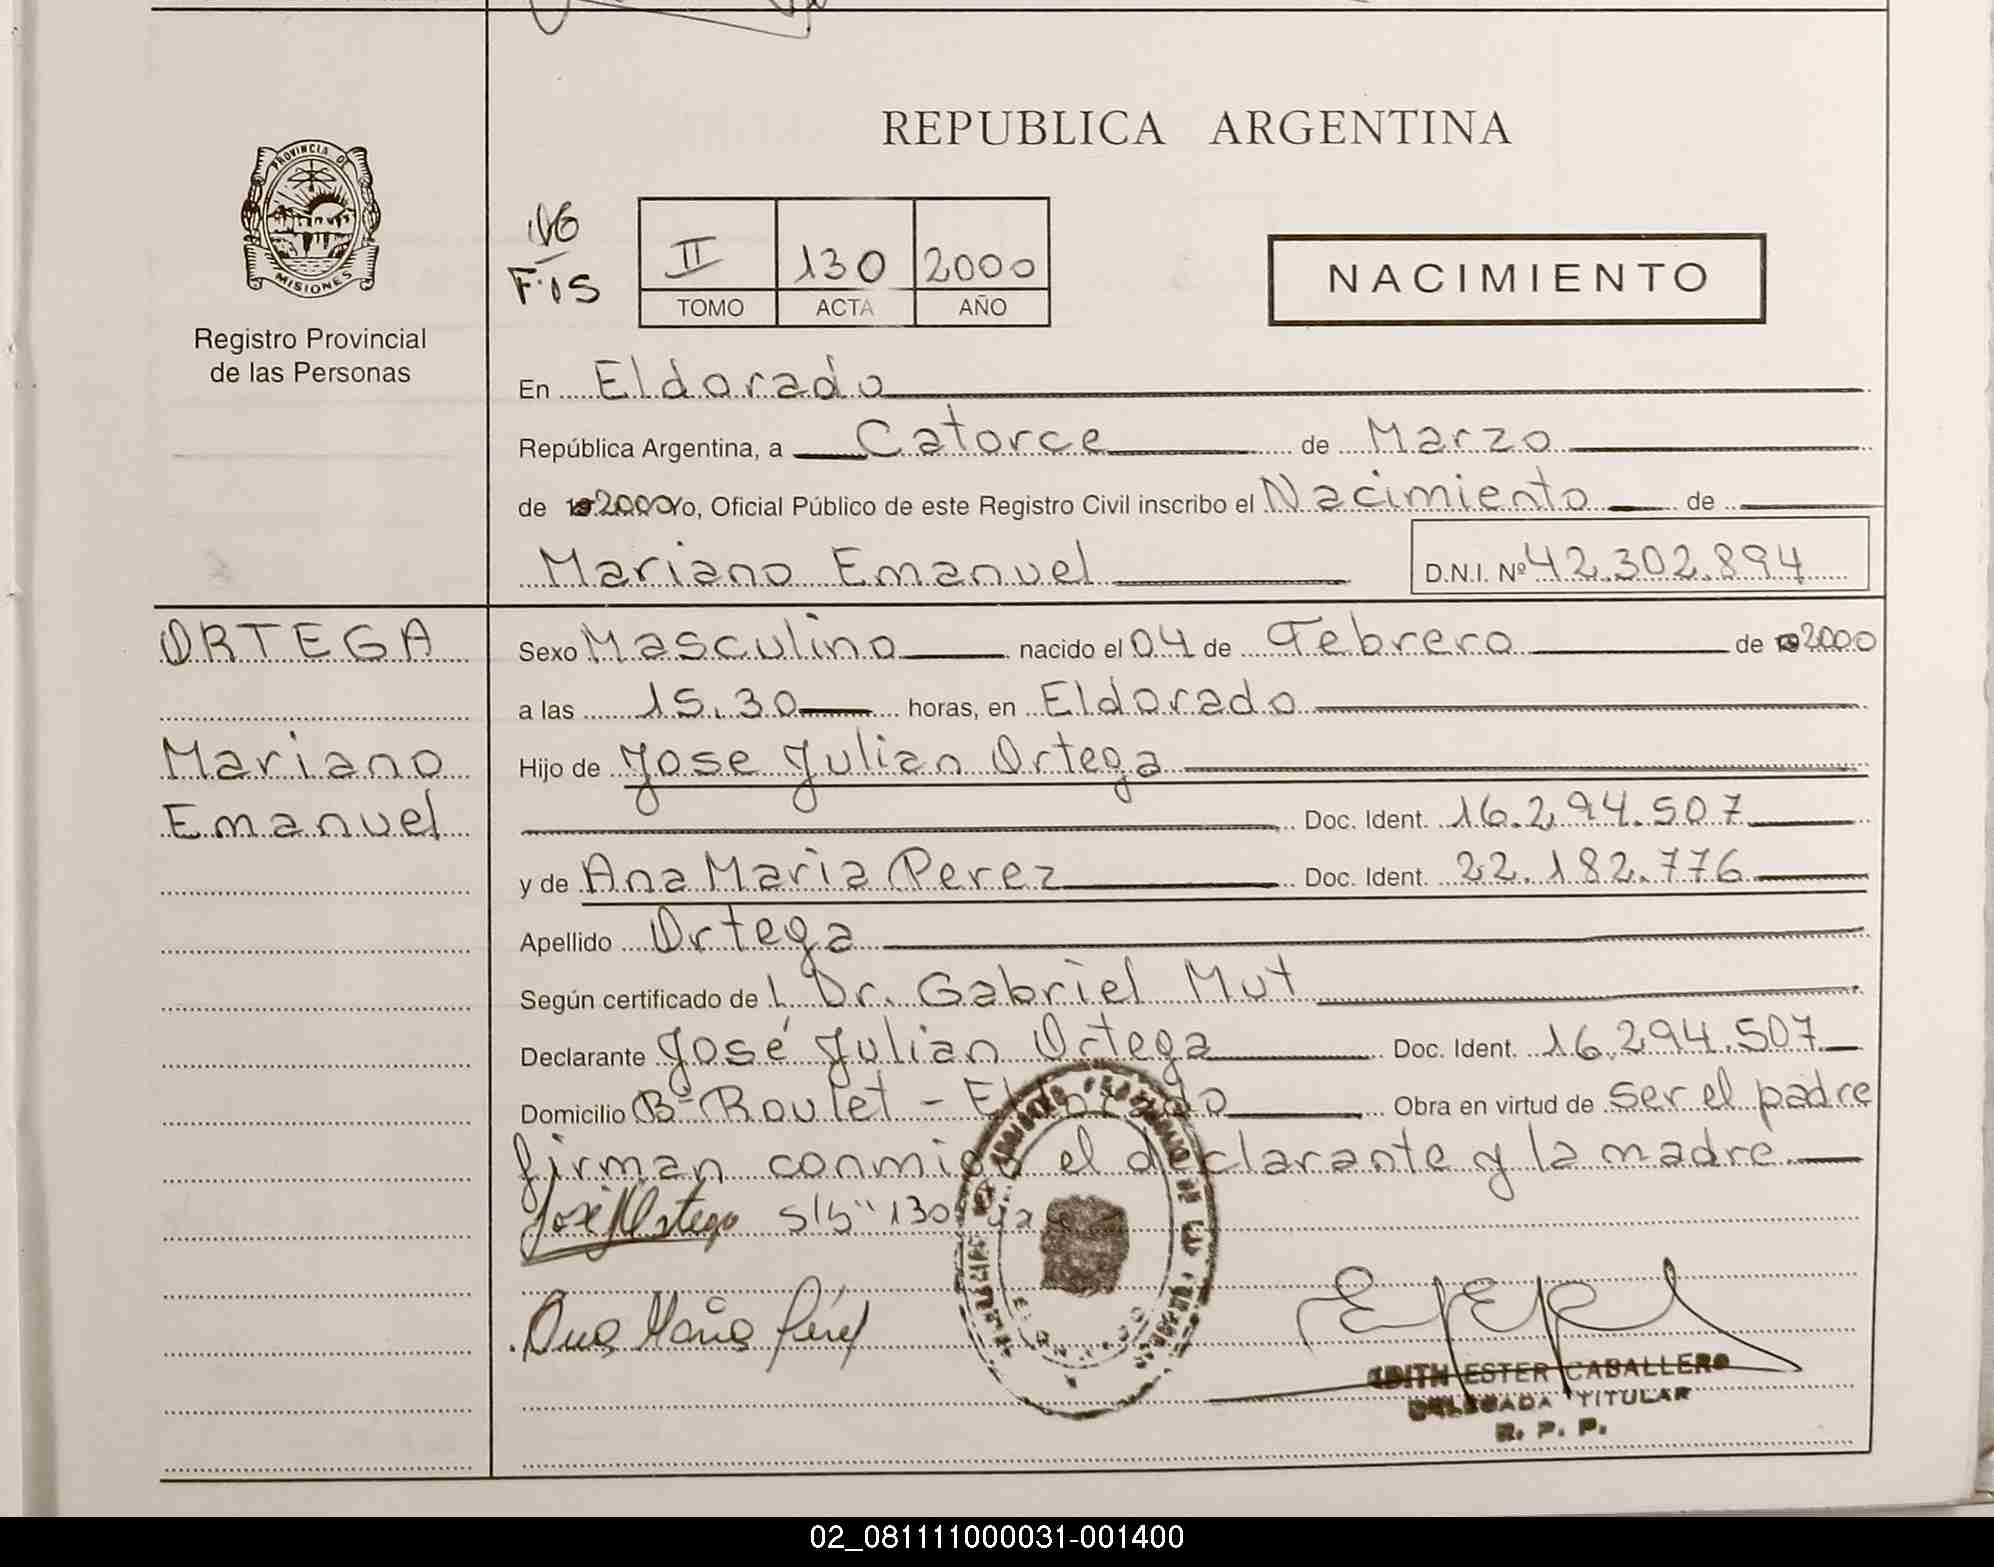 PROVINCIA DE
MISIONES
Registro Provincial
de las Personas
REPUBLICA ARGENTINA
F·15
II 130 2000
TOMO ACTA AÑO
NACIMIENTO
En Eldorado
República Argentina, a Catorce de Marzo
de 2000 Yo, Oficial Público de este Registro Civil inscribo el Nacimiento de
Mariano Emanuel D.N.I. Nº 42.302.894
ORTEGA
Mariano
Emanuel
Sexo Masculino nacido el 04 de Febrero de 2000
a las 15.30 horas, en Eldorado
Hijo de Jose Julian Ortega
Doc. Ident. 16.294.507
y de Ana Maria Perez Doc. Ident. 22.182.776
Apellido Ortega
Según certificado de l Dr. Gabriel Mut
Declarante José Julian Ortega Doc. Ident. 16.294.507
Domicilio Bº Roulet - Eldorado Obra en virtud de ser el padre
firman conmigo el declarante y la madre
José J Ortega S/b "130"
Ana María Pérez
EDITH ESTER CABALLERO
DELEGADA TITULAR
R. P. P.
02_081111000031-001400